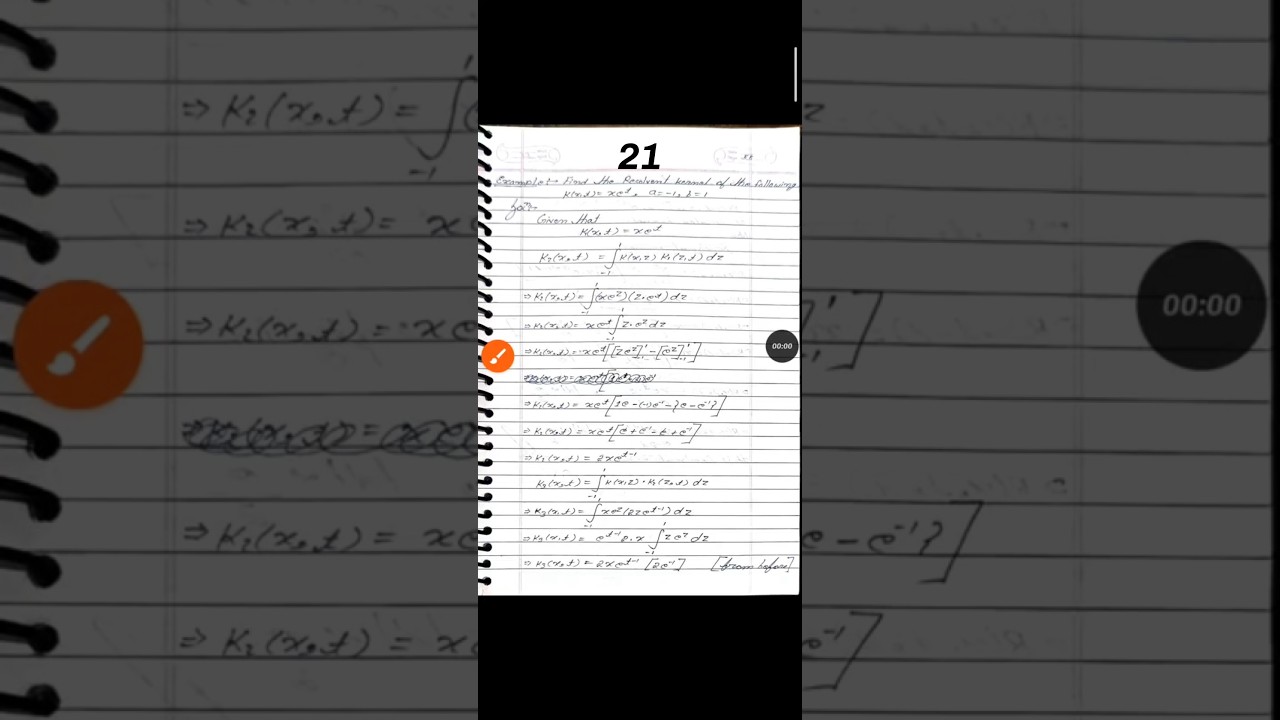 21
Example:→ Find the Resolvent kernel of the following
K(x,t) = xe^t, a=-1, b=1
Sol^n:-
Given that
K(x,t) = xe^t
K₂(x,t) = ∫₋₁¹ K(x,z) K₁(z,t) dz
⇒ K₂(x,t) = ∫₋₁¹ (xe^z)(z·e^t) dz
⇒ K₂(x,t) = xe^t ∫₋₁¹ z·e^z dz
⇒ K₂(x,t) = xe^t [[ze^z]₋₁¹ - [e^z]₋₁¹]
⇒ K₂(x,t) = xe^t [1e - (-1)e^-1 - {e - e^-1}]
⇒ K₂(x,t) = xe^t [e + e^-1 - e + e^-1]
⇒ K₂(x,t) = 2xe^t-1
K₃(x,t) = ∫₋₁¹ K(x,z)·K₂(z,t) dz
⇒ K₃(x,t) = ∫₋₁¹ xe^z (2ze^t-1) dz
⇒ K₃(x,t) = e^t-1 2·x ∫₋₁¹ ze^z dz
⇒ K₃(x,t) = 2xe^t-1 [2e^-1] [from before]
00:00
00:00